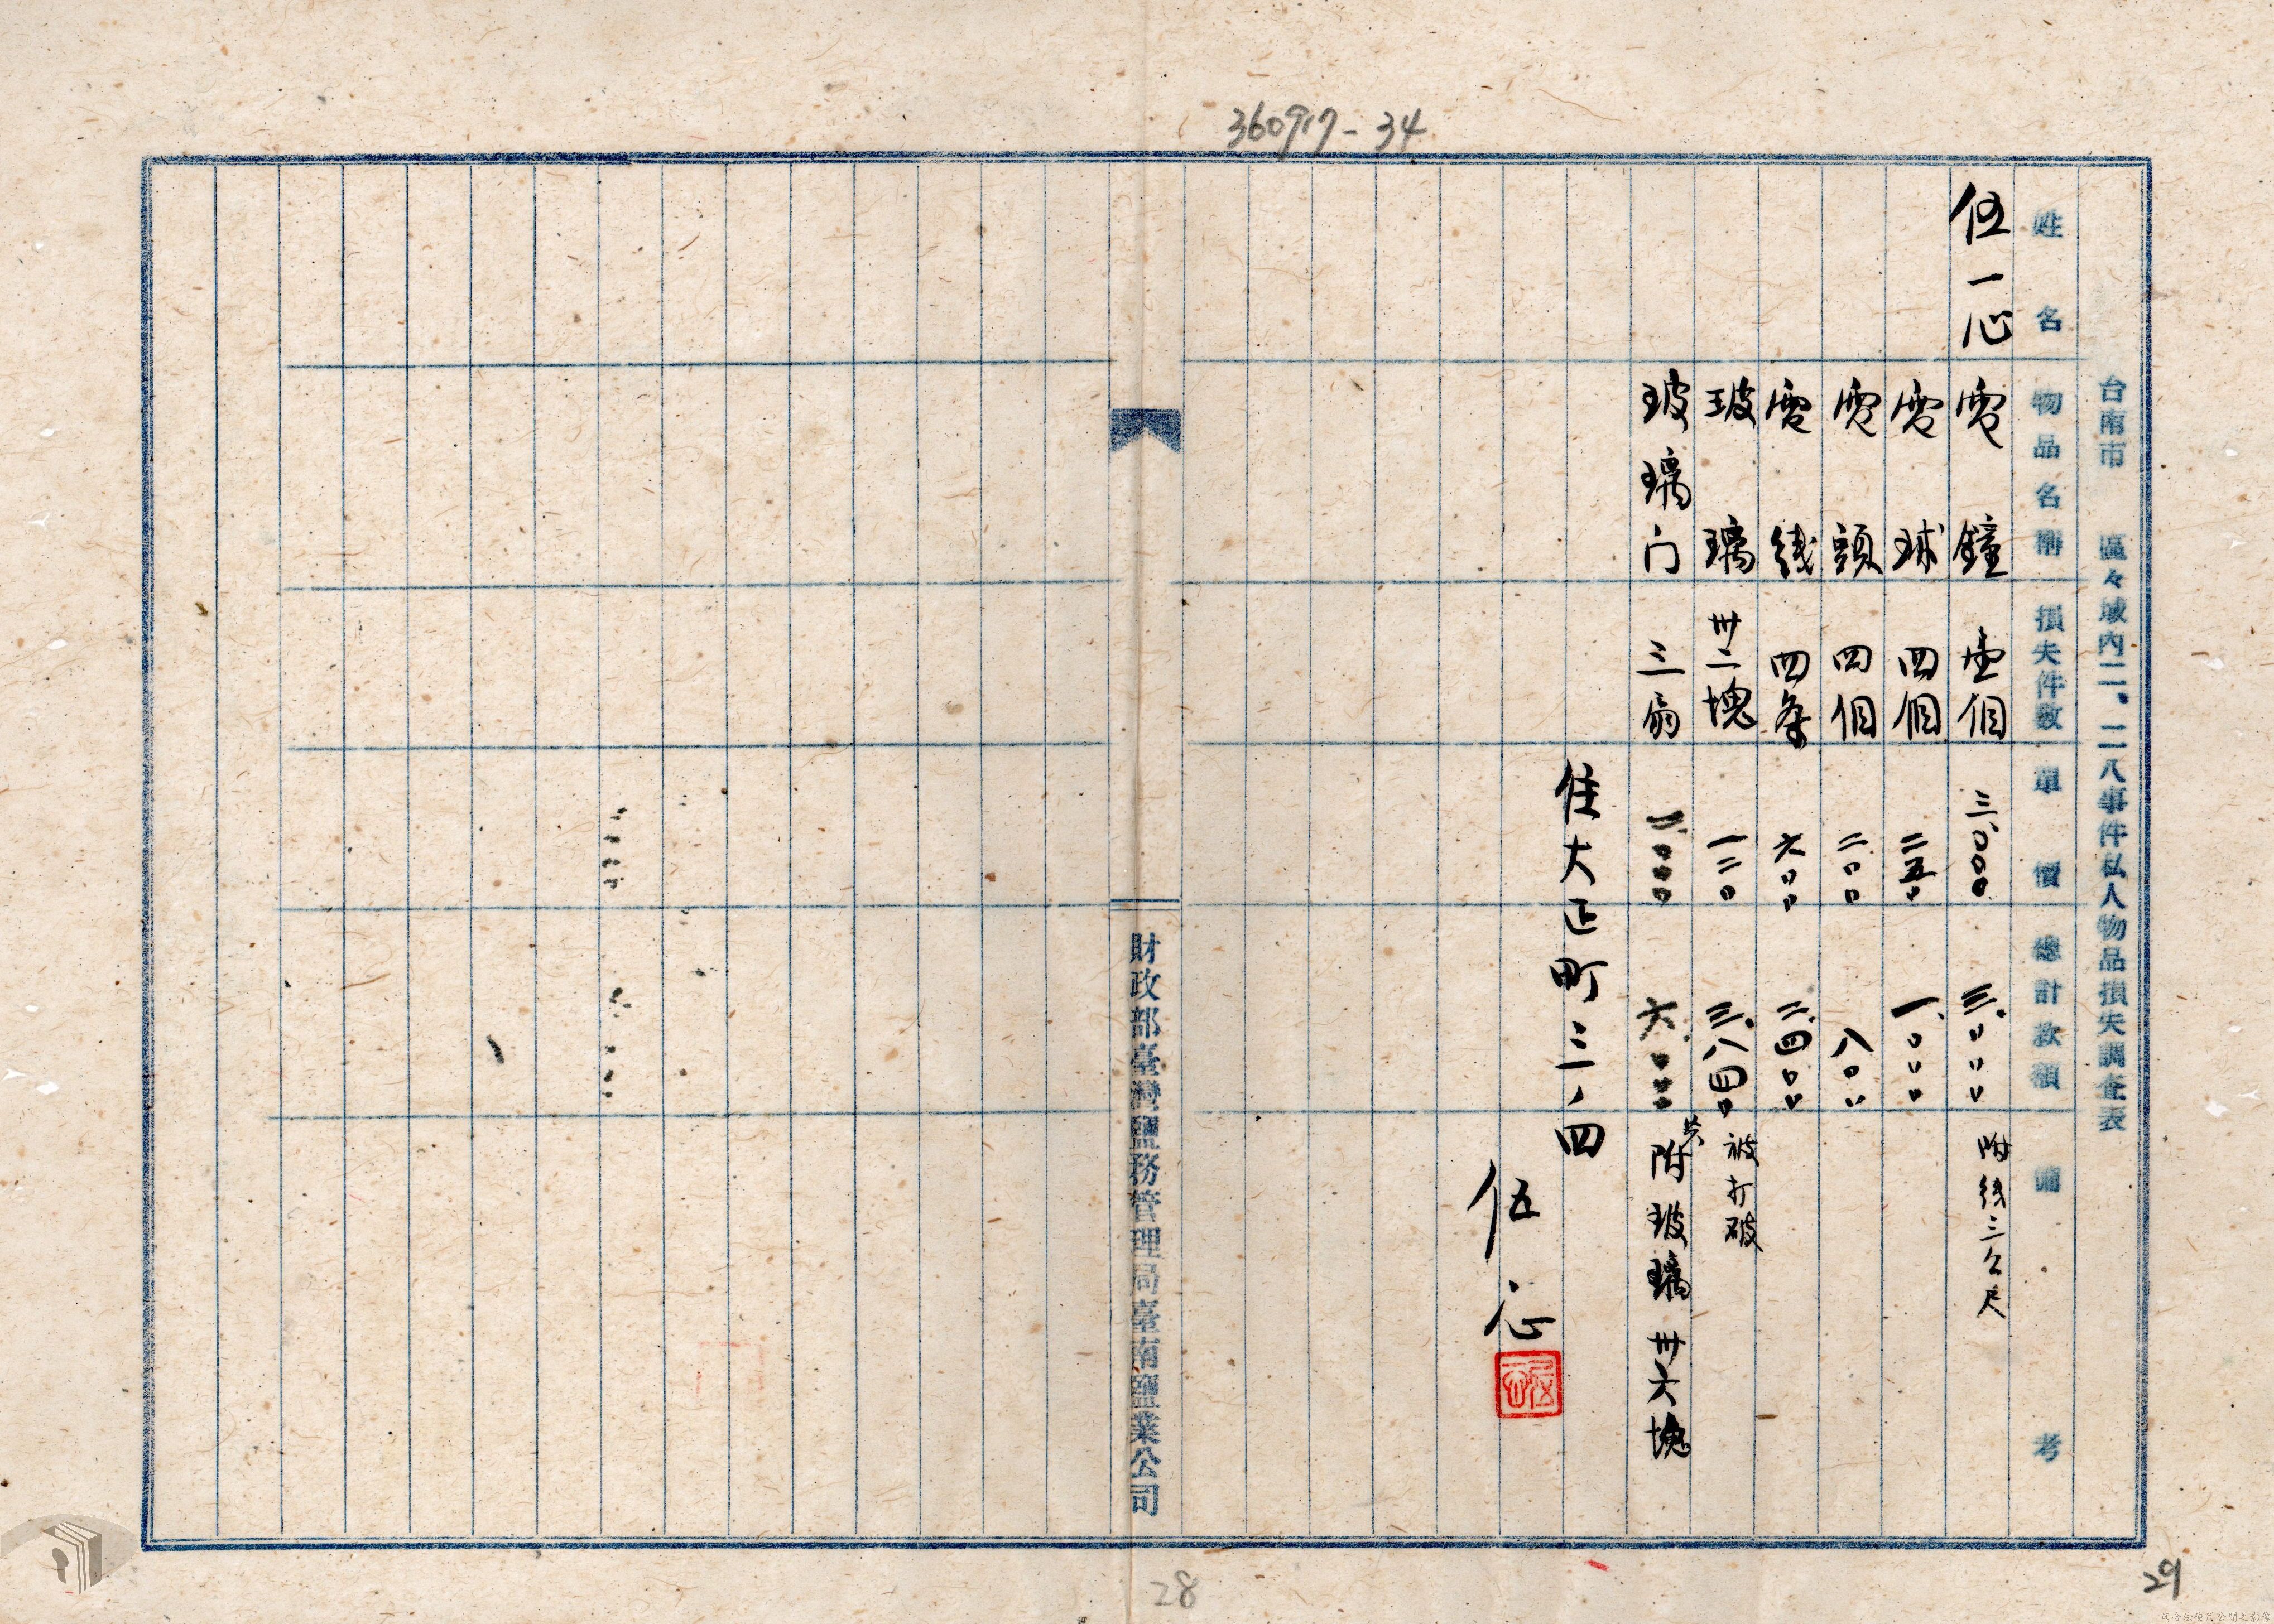 360917-34
台南市　區々域內二、二八事件私人物品損失調查表
姓名　物品名稱　損失件数　單價　總計款額　備考
伍一心　電鐘　壹個　三、000　三、000　附线三公尺
電球　四個　二五0　一、000
電頭　四個　二00　八00
電线　四条　六00　二、四00
玻璃　卅二塊　一二0　三、八四0　被打破
玻璃门　三扇　一、000　六、000　共附玻璃卅六塊
住大正町三、四
伍一心
財政部臺灣鹽務管理局臺南鹽業公司
28
29
請合法使用公開之影像